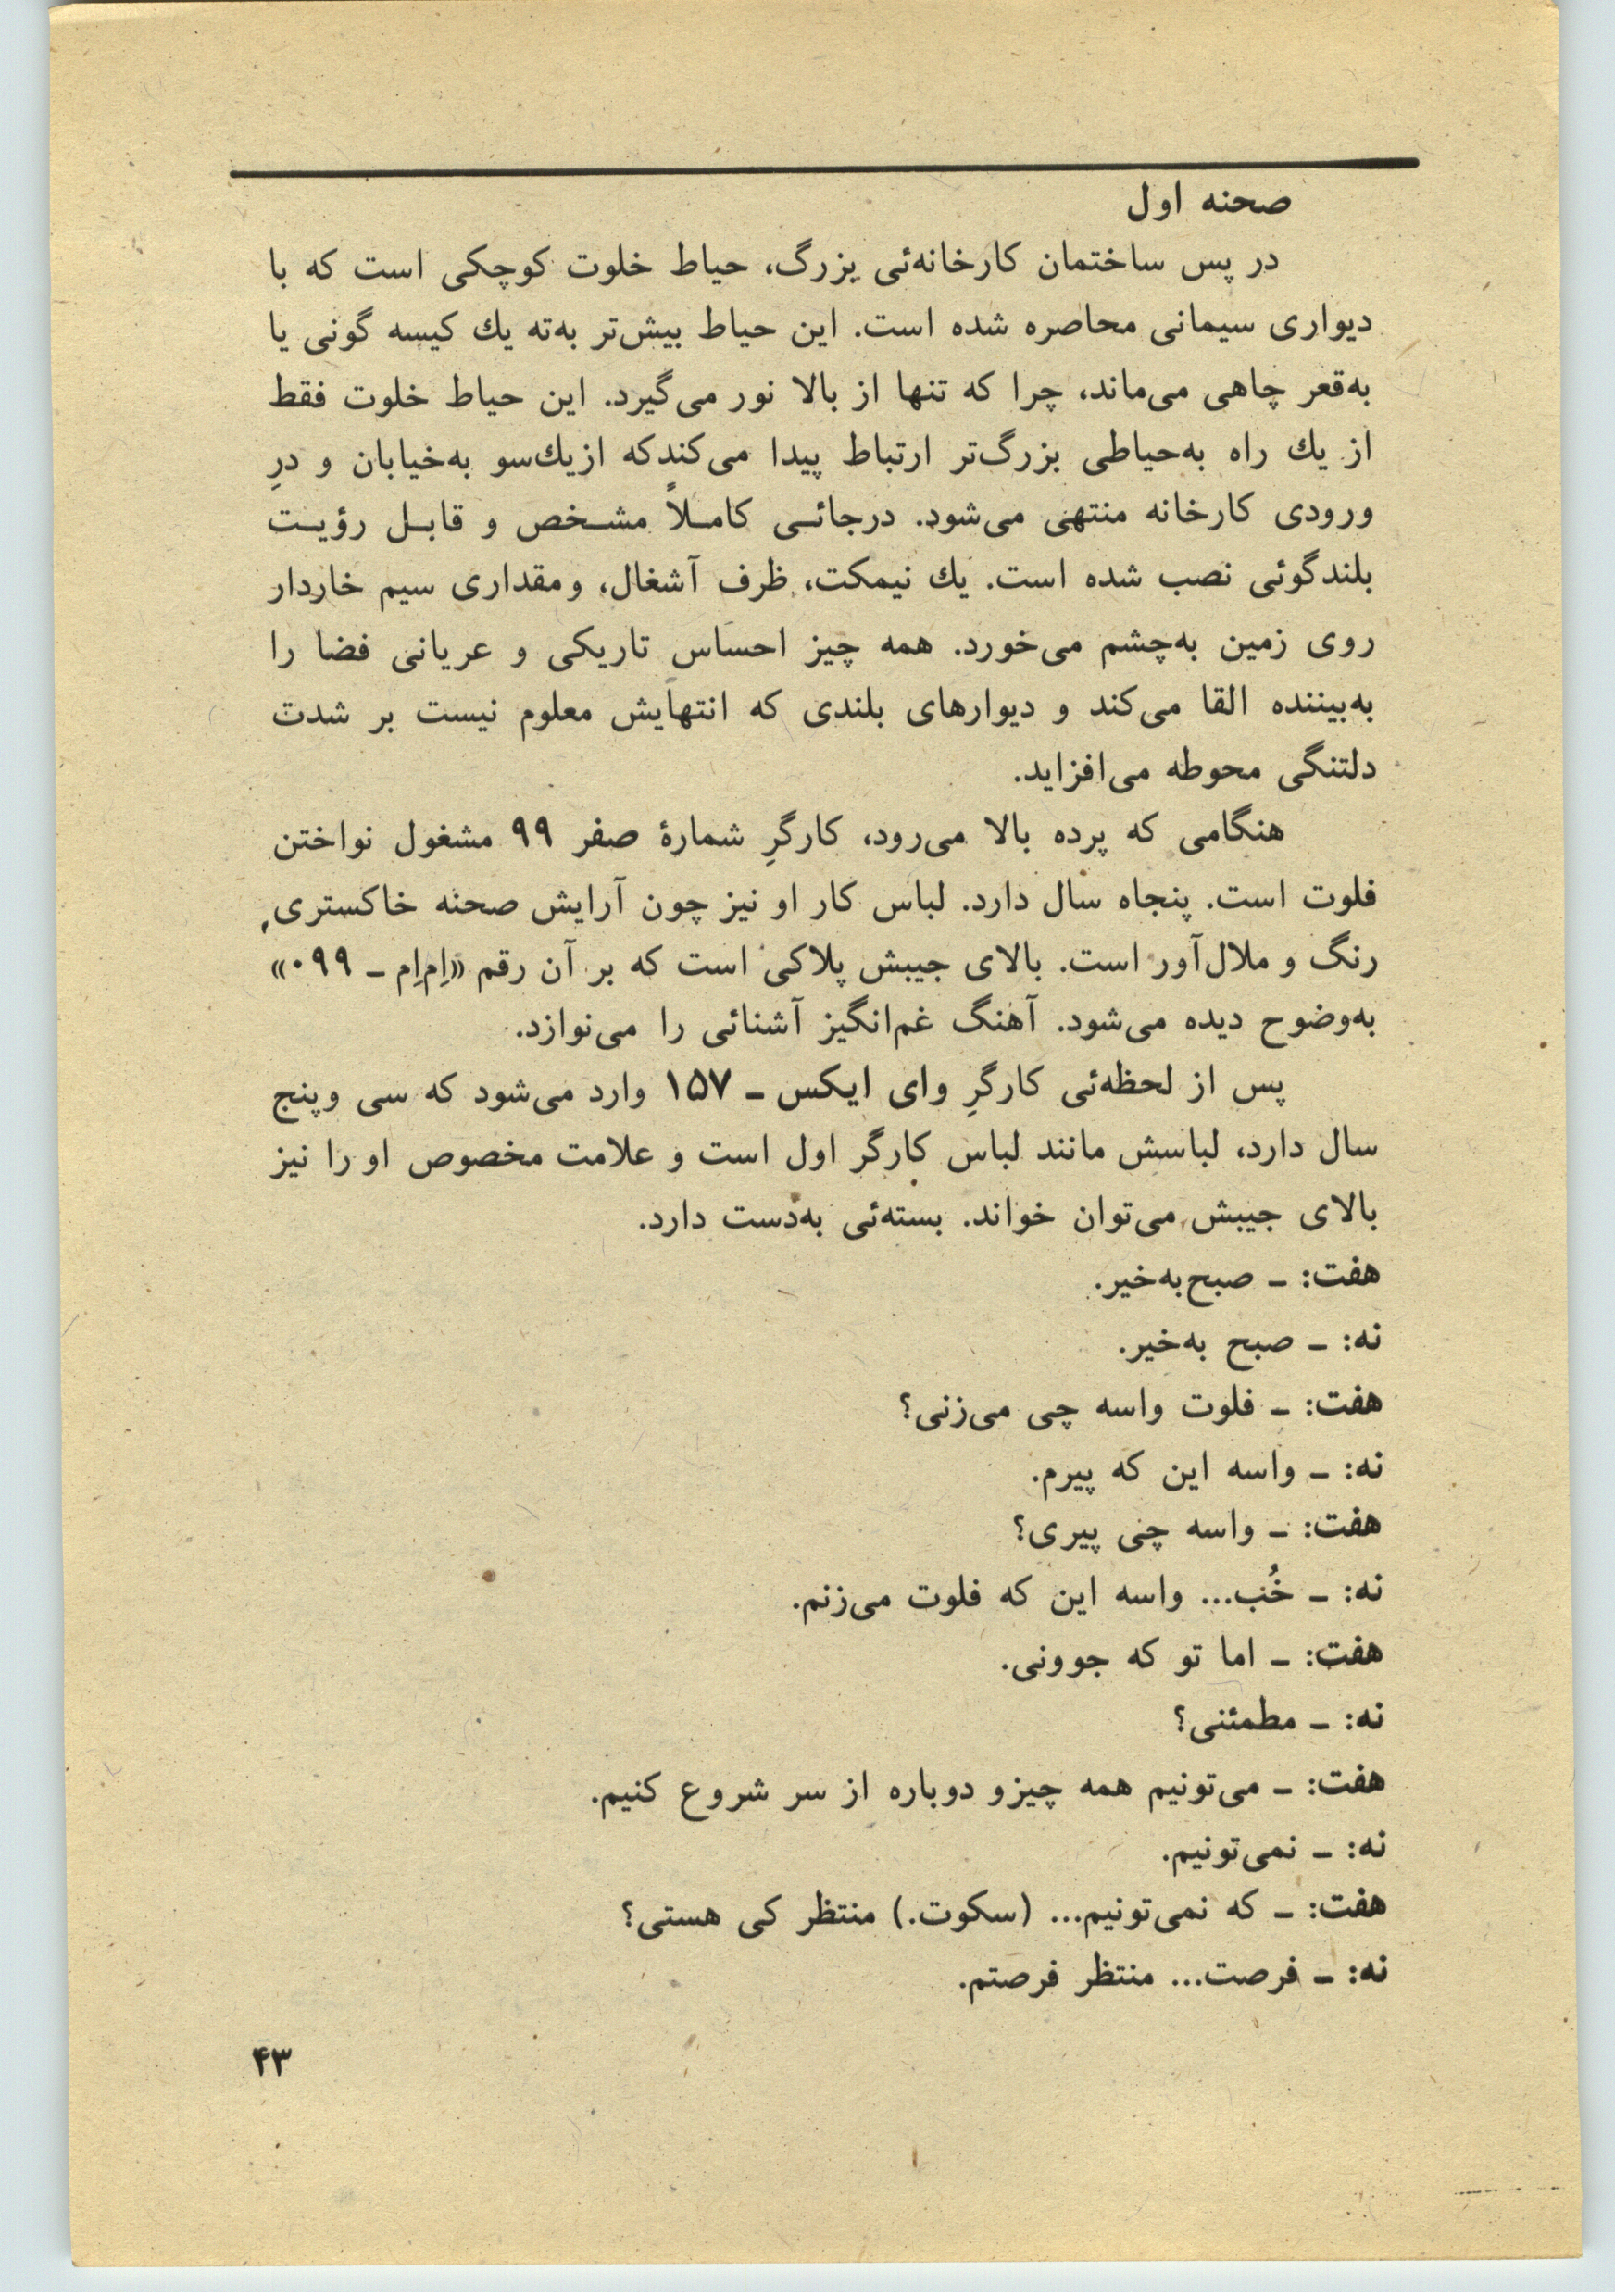 صحنه اول
در پس ساختمان کارخانه‌ئی بزرگ، حیاط خلوت کوچکی است که با
دیواری سیمانی محاصره شده است. این حیاط بیش‌تر به‌ته یك کیسه گونی یا
به‌قعر چاهی می‌ماند، چرا که تنها از بالا نور می‌گیرد. این حیاط خلوت فقط
از یك راه به‌حیاطی بزرگ‌تر ارتباط پیدا می‌کندکه ازیك‌سو به‌خیابان و درِ
ورودی کارخانه منتهی می‌شود. درجائـی کامـلاً مشـخص و قابـل رؤیـت
بلندگوئی نصب شده است. یك نیمکت، ظرف آشغال، ومقداری سیم خاردار
روی زمین به‌چشم می‌خورد. همه چیز احساس تاریکی و عریانی فضا را
به‌بیننده القا می‌کند و دیوارهای بلندی که انتهایش معلوم نیست بر شدت
دلتنگی محوطه می‌افزاید.
هنگامی که پرده بالا می‌رود، کارگرِ شمارۀ صفر ۹۹ مشغول نواختن
فلوت است. پنجاه سال دارد. لباس کار او نیز چون آرایش صحنه خاکستری
رنگ و ملال‌آور است. بالای جیبش پلاکی است که بر آن رقم «اِم‌اِم ـ ۰۹۹»
به‌وضوح دیده می‌شود. آهنگ غم‌انگیز آشنائی را می‌نوازد.
پس از لحظه‌ئی کارگرِ وای ایکس ـ ۱۵۷ وارد می‌شود که سی وپنج
سال دارد، لباسش مانند لباس کارگر اول است و علامت مخصوص او را نیز
بالای جیبش می‌توان خواند. بسته‌ئی به‌دست دارد.
هفت: ـ صبح‌به‌خیر.
نه: ـ صبح به‌خیر.
هفت: ـ فلوت واسه چی می‌زنی؟
نه: ـ واسه این که پیرم.
هفت: ـ واسه چی پیری؟
نه: ـ خُب... واسه این که فلوت می‌زنم.
هفت: ـ اما تو که جوونی.
نه: ـ مطمئنی؟
هفت: ـ می‌تونیم همه چیزو دوباره از سر شروع کنیم.
نه: ـ نمی‌تونیم.
هفت: ـ که نمی‌تونیم... (سکوت.) منتظر کی هستی؟
نه: ـ فرصت... منتظر فرصتم.
۴۳